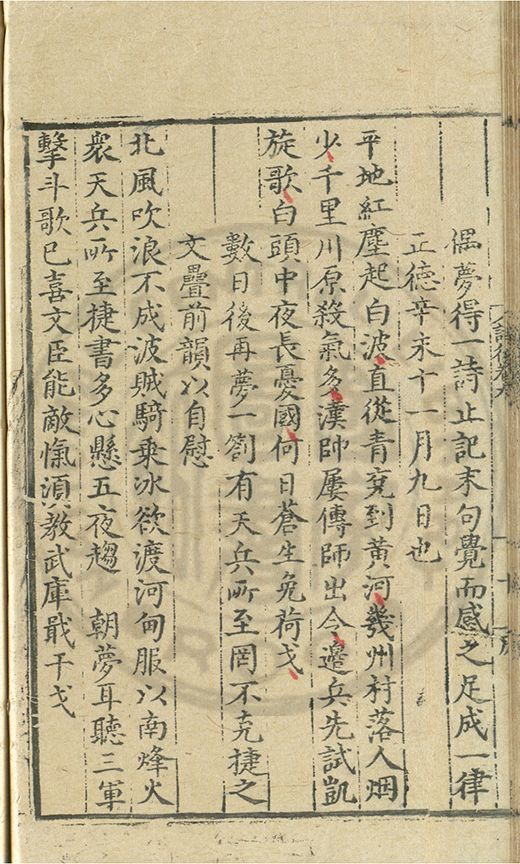 偶夢得一詩止記末句覺而感之足成一律
正德辛未十一月九日也
平地紅塵起白波直從青兗到黃河幾州村落人烟
少千里川原殺氣多漢帥屢傳師出今邊兵先試凱
旋歌白頭中夜長憂國何日蒼生免荷戈
數日後再夢一劄有天兵所至罔不克捷之
文疊前韻以自慰
北風吹浪不成波賊騎乘冰欲渡河甸服以南烽火
衆天兵所至捷書多心懸五夜趨 朝夢耳聽三軍
擊斗歌已喜文臣能敵愾須教武庫戢干戈